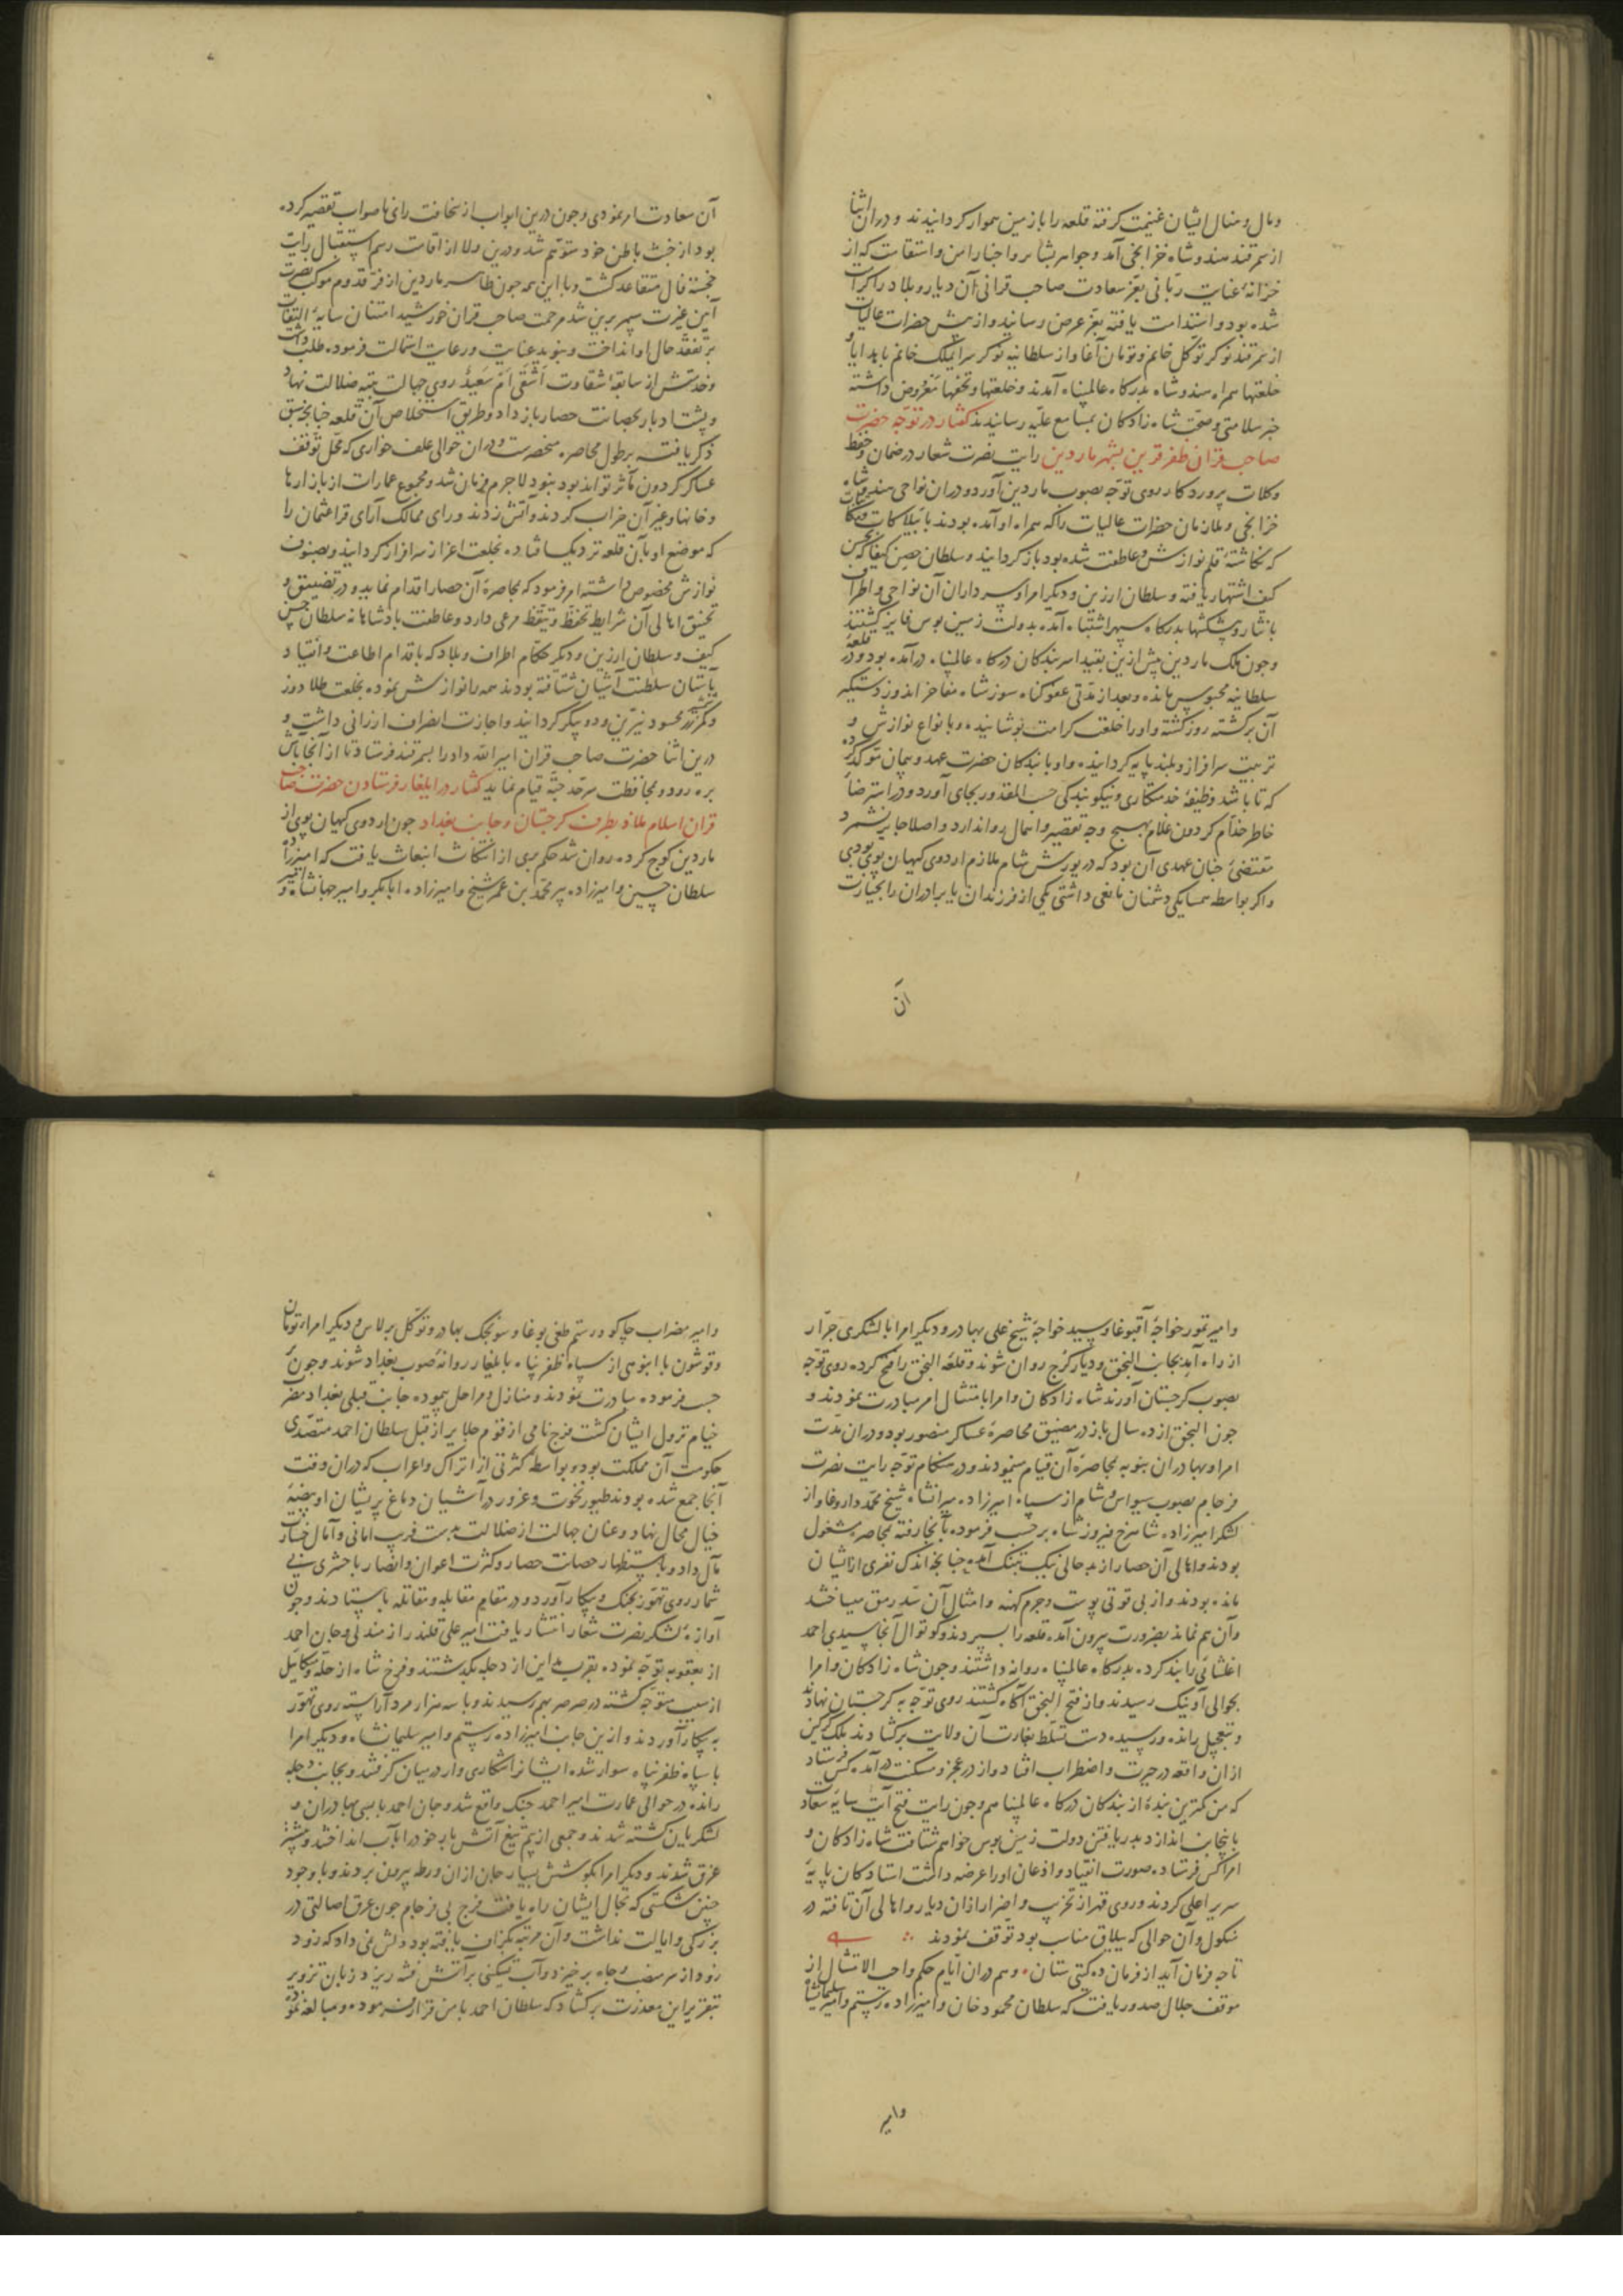 ومال و منال ایشان غنیمت کرفته قلعه را با زمین هموار کردانیدند و دران اثنا
از سمرقند هندو شاه خزانجی آمد و جواهر بشایر و اخبار امن و استقامت که از
خزانهٔ عنایت ربّانی بفرّ سعادت صاحب قرانی آن دیار و بلاد را کرامت
شده بود و استدامت یافته بعزّ عرض رسانید و از پیش حضرات عالیات
از سمرقند نوکر توکّل خانم و تومان آغا و از سلطانیه نوکر سرایملک خانم با هدایا و
خلعتها همراه هندو شاه بدرکاه عالمپناه آمدند و خلعتها و تحفها معروض داشته
خبر سلامتی و صحّت شاه زادکان بمسامع علیّه رسانیدند کفتار در توجّه حضرت
صاحب قران ظفر قرین بشهر ماردین رایت نصرت شعار در ضمان حفظ
و کلات پروردکار روی توجّه بصوب ماردین آورد و دران نواحی هندو شاه
خزانجی و ملازمان حضرات عالیات را که همراه او آمده بودند با بیلاکات
که نکاشتهٔ قلم نوازش و عاطفت شده بود باز کردانید و سلطان حصن کیفا که بحسن
کیف اشتهار یافته و سلطان ارزین و دیکر امرا و سرداران آن نواحی و اطراف
با نثار و پیشکشها بدرکاه سپهر اشتباه آمده بدولت زمین بوس فایز کشتند
و چون ملک ماردین پیش ازین بقید اسر بندکان درکاه عالمپناه درآمده بود و در قلعهٔ
سلطانیه محبوس مانده و بعد از مدّتی عفو کناه سوز شاه مفاخر اندوز دستکیر
آن برکشته روز کشته و او را خلعت کرامت پوشانیده و بانواع نوازش و
تربیت سرافراز و بلند پایه کردانیده و او با بندکان حضرت عهد و پیمان مؤکّد کرده
که تا باشد وظیفهٔ خدمتکاری و نیکو بندکی حسب المقدور بجای آورد و در استرضاء
خاطر خدّام کردون غلام بهیچ وجه تقصیر و اهمال روا ندارد و اصلا جایز نشمرد
مقتضیٔ چنان عهدی آن بود که در یورش شام ملازم اردوی کیهان پوی بودی
و اکر بواسطه همسایکی دشمنان مانعی داشتی یکی از فرزندان یا برادران را بحیازت
آن
آن سعادت امر نمودی و چون درین ابواب از سخافت رای ناصواب تقصیر کرده
بود از خبث باطن خود متوهّم شد و درین ولا از اقامت رسم استقبال رایت
خجسته فال متقاعد کشت و با این همه چون ظاهر ماردین از فرّ قدوم موکب نصرت
آیین غیرت سپهر برین شد مرحمت صاحب قران خورشید امتنان سایهٔ التفات
بر تفقّد حال او انداخت و بنوید عنایت و رعایت استمالت فرموده طلب داشت
و خدمتش از سابقهٔ شقاوت أَشَقِیٌّ اَم سَعِیدٌ روی جهالت بتیه ضلالت نهاد
و پشت ادبار بحصانت حصار باز داد و طریق استخلاص آن قلعه چنانچه سبق
ذکر یافته بر طول محاصره منحصرست و دران حوالی علف خواری که محلّ توقّف
عساکر کردون مآثر تواند بود نبود لا جرم فرمان شد و مجموع عمارات از بازارها
و خانها و غیر آن خراب کردند و آتش زدند و رای ممالک آرای قرا عثمان را
که موضع او بآن قلعه نزدیک افتاده بخلعت اعزاز سرافراز کردانید و بصنوف
نوازش مخصوص داشته امر فرمود که بمحاصرهٔ آن حصار اقدام نماید و در تضییق و
تخنیق اهالی آن شرایط تحفّظ و تیقّظ مرعی دارد و عاطفت پادشاهانه سلطان حصن
کیف و سلطان ارزین و دیکر حکّام اطراف و بلاد که باقدام اطاعت و انقیاد
بآستان سلطنت آشیان شتافته بودند همه را نوازش نموده بخلعت طلا دوز
و کمر زر محسود نیّرین و دو پیکر کردانید و اجازت انصراف ارزانی داشت و
درین اثنا حضرت صاحب قران امیر الله داد را بسمرقند فرستاد تا از آنجا باش
بره رود و بمحافظت سرحد جته قیام نماید کفتار در ایلغار فرستادن حضرت صاحب
قران اسلام ملاذ بطرف کرجستان و جانب بغداد چون اردوی کیهان پوی از
ماردین کوچ کرده روان شد حکم بری از انتکاث انبعاث یافت که امیرزاده
سلطان حسین و امیرزاده پیر محمّد بن عمر شیخ و امیرزاده ابابکر و امیر جهانشاه و
و امیر تمور خواجهٔ آقبوغا و سید خواجهٔ شیخ علی بهادر و دیکر امرا با لشکری جرّار
از راه آمد بجانب النجق و دیار کرج روان شوند و قلعهٔ النجق را فتح کرده روی توجّه
بصوب کرجستان آورند شاه زادکان و امرا بامتثال امر مبادرت نمودند و
چون النجق از ده سال باز در مضیق محاصرهٔ عساکر منصور بود و دران مدّت
امرا و بهادران بنوبه بمحاصرهٔ آن قیام مینمودند و در هنکام توجّه رایت نصرت
فرجام بصوب سیواس و شام از سپاه امیرزاده میرانشاه شیخ محمّد داروغا و از
لشکر امیرزاده شاهرخ فیروز شاه برحسب فرموده بآنجا رفته بمحاصره مشغول
بودند و اهالی آن حصار از بد حالی نیک بتنک آمده چنانچه اندک نفری از ایشان
مانده بودند و از بی قوتی پوست و چرم کهنه و امثال آن سدّ رمق میساختند
و آن هم نماند بضرورت بیرون آمده قلعه را بسپردند و کوتوال آنجا سیدی احمد
اغلشائی را بند کرده بدرکاه عالمپناه روانه داشتند و چون شاه زادکان و امرا
بحوالی آونیک رسیدند و از فتح النجق آکاه کشتند روی توجّه به کرجستان نهادند
و بتعجیل رانده و رسیده دست تسلّط بغارت آن ولایت برکشادند ملک کرکین
ازان واقعه در حیرت و اضطراب افتاد و از در عجز و مسکنت درآمده کس فرستاد
که من کمترین بندهٔ از بندکان درکاه عالمپناهم و چون رایت فتح آیت سایهٔ سعادت
باینجانب اندازد بدریافتن دولت زمین بوس خواهم شتافت شاه زادکان و
امرا کس فرستاده صورت انقیاد و اذعان او را عرضه داشت استادکان پایهٔ
سریر اعلی کردند و روی قهر از تخریب و اضرار ازان دیار و اهالی آن تافته در
منکول و آن حوالی که ییلاق مناسب بود توقّف نمودند
تا چه فرمان آید از فرمان ده کیتی ستان و هم دران ایّام حکم واجب الامتثال از
موقف جلال صدور یافت که سلطان محمود خان و امیرزاده رستم و امیر سلیمانشاه
وامیر
و امیر مضراب چاکو و رستم طغی بوغا و سونجک بهادر و توکّل برلاس و دیکر امراء تومان
و قوشون با انبوهی از سپاه ظفر پناه بایلغار روانهٔ صوب بغداد شوند و چون
حسب فرموده مبادرت نمودند و منازل و مراحل پیموده جانب قبلی بغداد مضرب
خیام نزول ایشان کشت فرج نامی از قوم جلایر از قبل سلطان احمد متصدّی
حکومت آن مملکت بود و بواسطهٔ کثرتی از اتراک و اعراب که دران وقت
آنجا جمع شده بودند طیور نخوت و غرور در آشیان دماغ پریشان او بیضهٔ
خیال محال نهاد و عنان جهالت از ضلالت بدست فریب امانی و آمال خسارت
مآل داد و باستظهار حصانت حصار و کثرت اعوان و انصار با حشری بی
شمار روی تهوّر بجنک و پیکار آورد و در مقام مقابله و مقاتله باستادند و چون
آوازهٔ لشکر نصرت شعار انتشار یافت امیر علی قلندر از مندلی و جان احمد
از یعقوبه توجّه نموده بقرب مداین از دجله بکذشتند و فرخ شاه از حلّه و میکائیل
از سیب متوجّه کشته در صرصر بهم رسیدند و با سه هزار مرد آراسته روی تهوّر
به پیکار آوردند و ازین جانب امیرزاده رستم و امیر سلیمانشاه و دیکر امرا
با سپاه ظفر پناه سوار شده ایشانرا شکاری وار در میان کرفتند و بجانب دجله
رانده در حوالی عمارت امیر احمد جنک واقع شد و جان احمد با بسی بهادران و
لشکریان کشته شدند و جمعی از بیم تیغ آتش بار خود را بآب انداختند و بیشتر
غرق شدند و دیکر امرا بکوشش بسیار جان ازان ورطه بیرون بردند و با وجود
چنین شکستی که بحال ایشان راه یافت فرج بی فرجام چون عرق اصالتی در
بزرکی و ایالت نداشت و آن مرتبه بکزاف یافته بود دلش نمی داد که زود
زود از سر منصب و جاه برخیزد و آب تسکینی بر آتش فتنه ریزد زبان تزویر
بتقریر این معذرت برکشاد که سلطان احمد با من قرار فرموده و مبالغه نموده